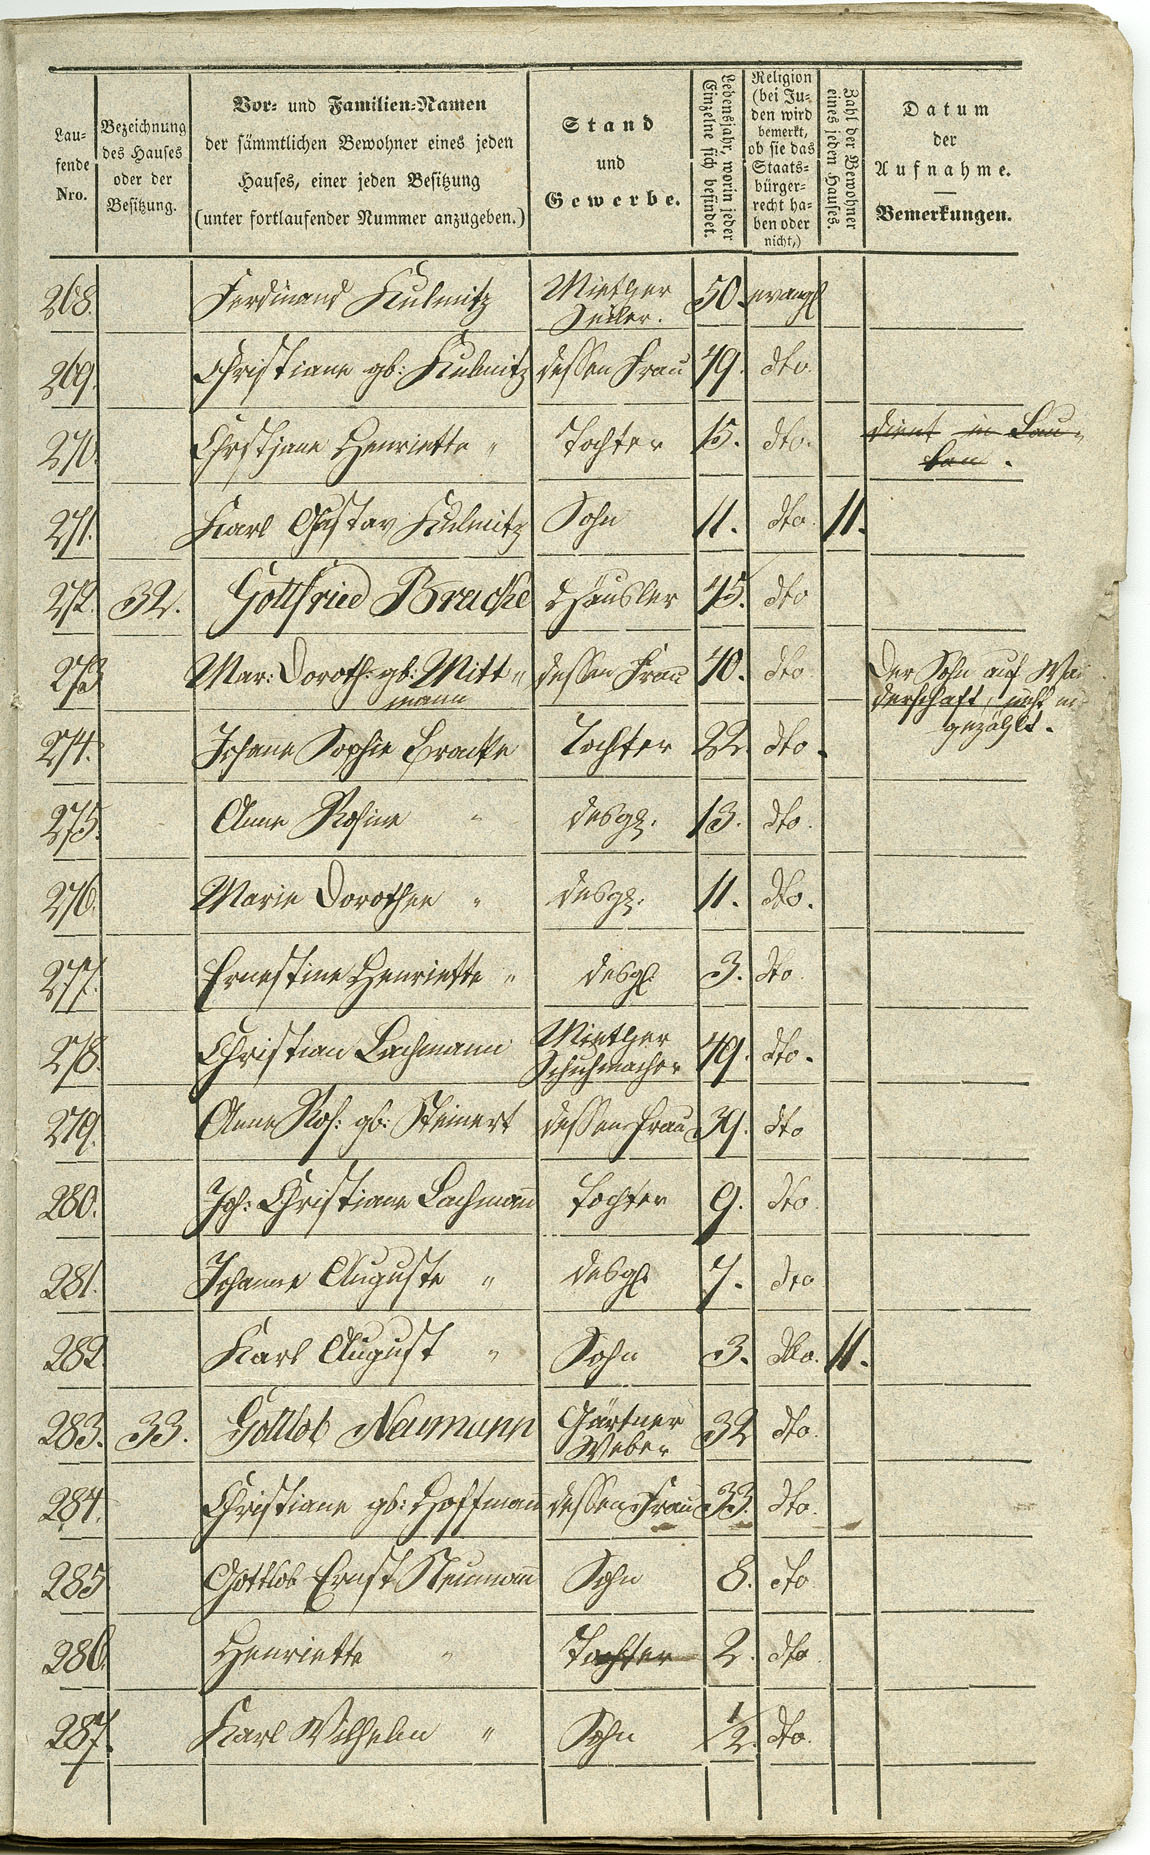 Lau=
fende
Nro.
Bezeichnung
des Hauses
oder der
Besitzung.
Vor= und Familien=Namen
der sämmtlichen Bewohner eines jeden
Hauses, einer jeden Besitzung
(unter fortlaufender Nummer anzugeben.)
Stand
und
Gewerbe.
Lebensjahr, worin jeder
Einzelne sich befindet.
Religion
(bei Ju=
den wird
bemerkt,
ob sie das
Staats=
bürger=
recht ha=
ben oder
nicht,)
Zahl der Bewohner
eines jeden Hauses.
Datum
der
Aufnahme.
Bemerkungen.
268. Ferdinand Kulmitz Miether 50. evangl
Seiler.
269. Christiane gb: Kulmitz dessen Frau 49. dto.
270. Chrstjane Henriette " Tochter 15. dto. dient in Lau=
ban.
271. Karl Gustav Kulmitz Sohn 11. dto. 11.
272. 32. Gottfried Bracke Häusler 45. dto
273 Mar: Doroth: gb: Mitt= dessen Frau 40. dto. Der Sohn auf
mann derschaft, nicht
274. Johane Sophie Bracke Tochter 22. dto. gezählt.
275. Anne Rosine " desgl. 13. dto.
276. Marie Dorothee " desgl. 11. dto.
277. Ernestine Henriette " desgl. 3. dto.
278. Christian Lachmann Miether 49. dto.
Schuhmacher
279. Anne Ros: gb: Steinert dessen Frau 39. dto
280. Joh: Christiane Lachmann Tochter 9. dto.
281. Johanne Auguste " desgl 7. dto
282. Karl August " Sohn 3. dto. 11.
283. 33. Gottlob Neumann Gärtner 32 dto.
Weber
284. Christiane gb: Hoffmann dessen Frau 33. dto.
285 Gottlob Ernst Neumann Sohn 8. dto
286. Henriette " Tochter 2. dto.
287. Karl Wilhelm " Sohn 1/2. dto.